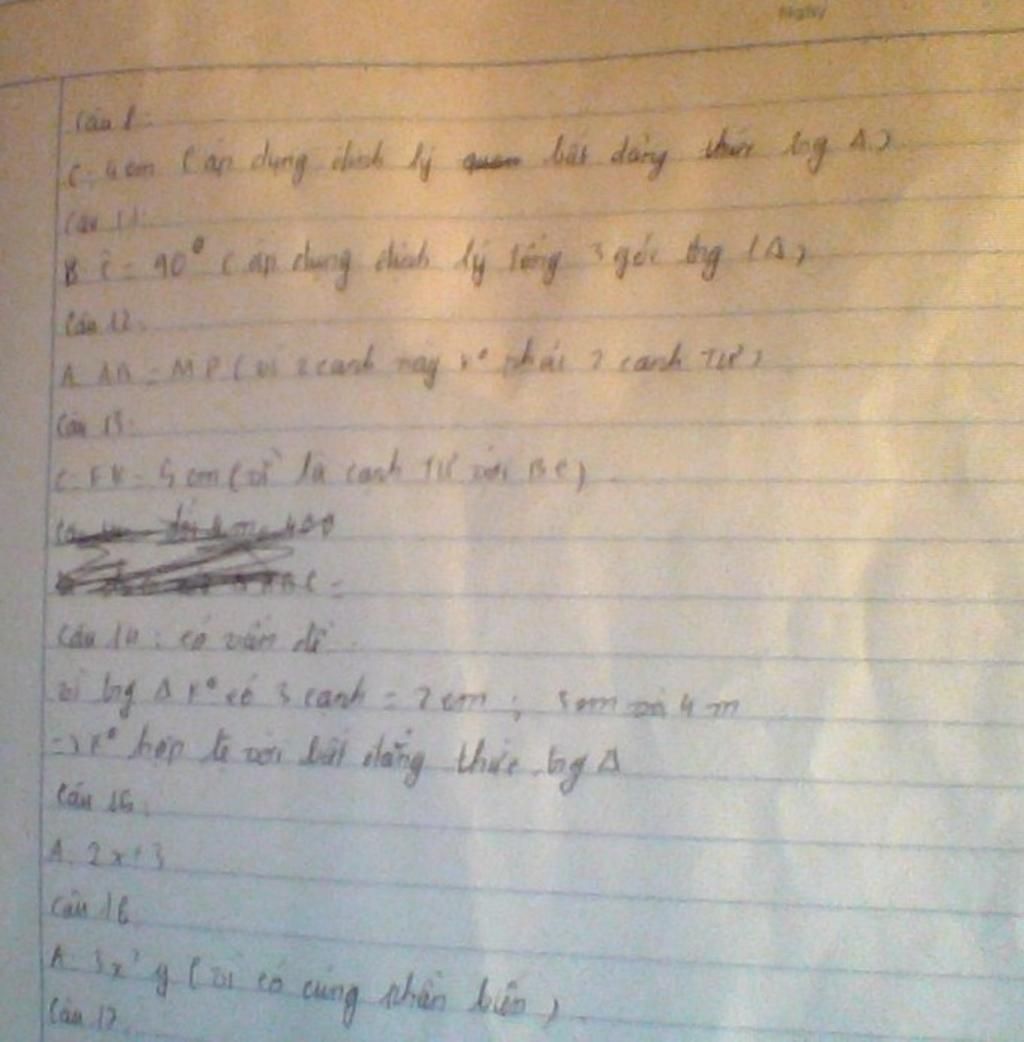 Ngày
Câu 1:
C: 4cm (áp dụng định lý bất đẳng thức trg Δ)
Câu 11:
B Ĉ = 90° (áp dụng định lý tổng 3 góc trg 1Δ)
Câu 12:
A AB = MP (vì 2 cạnh này k° phải 2 cạnh TƯ)
Câu 13:
C: FK = 5cm (vì là cạnh TƯ với BC)
Câu 14: có vấn đề
vì trg Δ k° có 3 cạnh = 2cm; 5cm và 4m
=> k° hợp lệ với bất đẳng thức trg Δ
Câu 15:
A: 2x+3
Câu 16
A: 3x² y (vì có cùng phần biến)
Câu 17